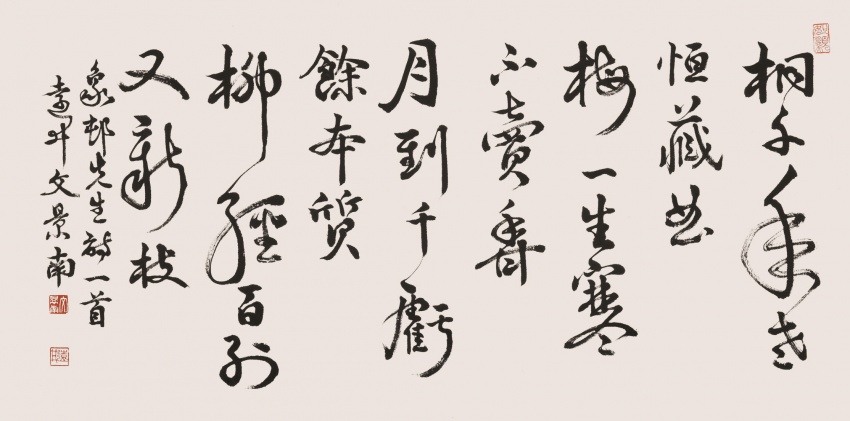 桐千年老
恒藏曲
梅一生寒
不賣香
月到千虧
餘本質
柳經百別
又新枝
象邨先生詩一首
遠井文景南